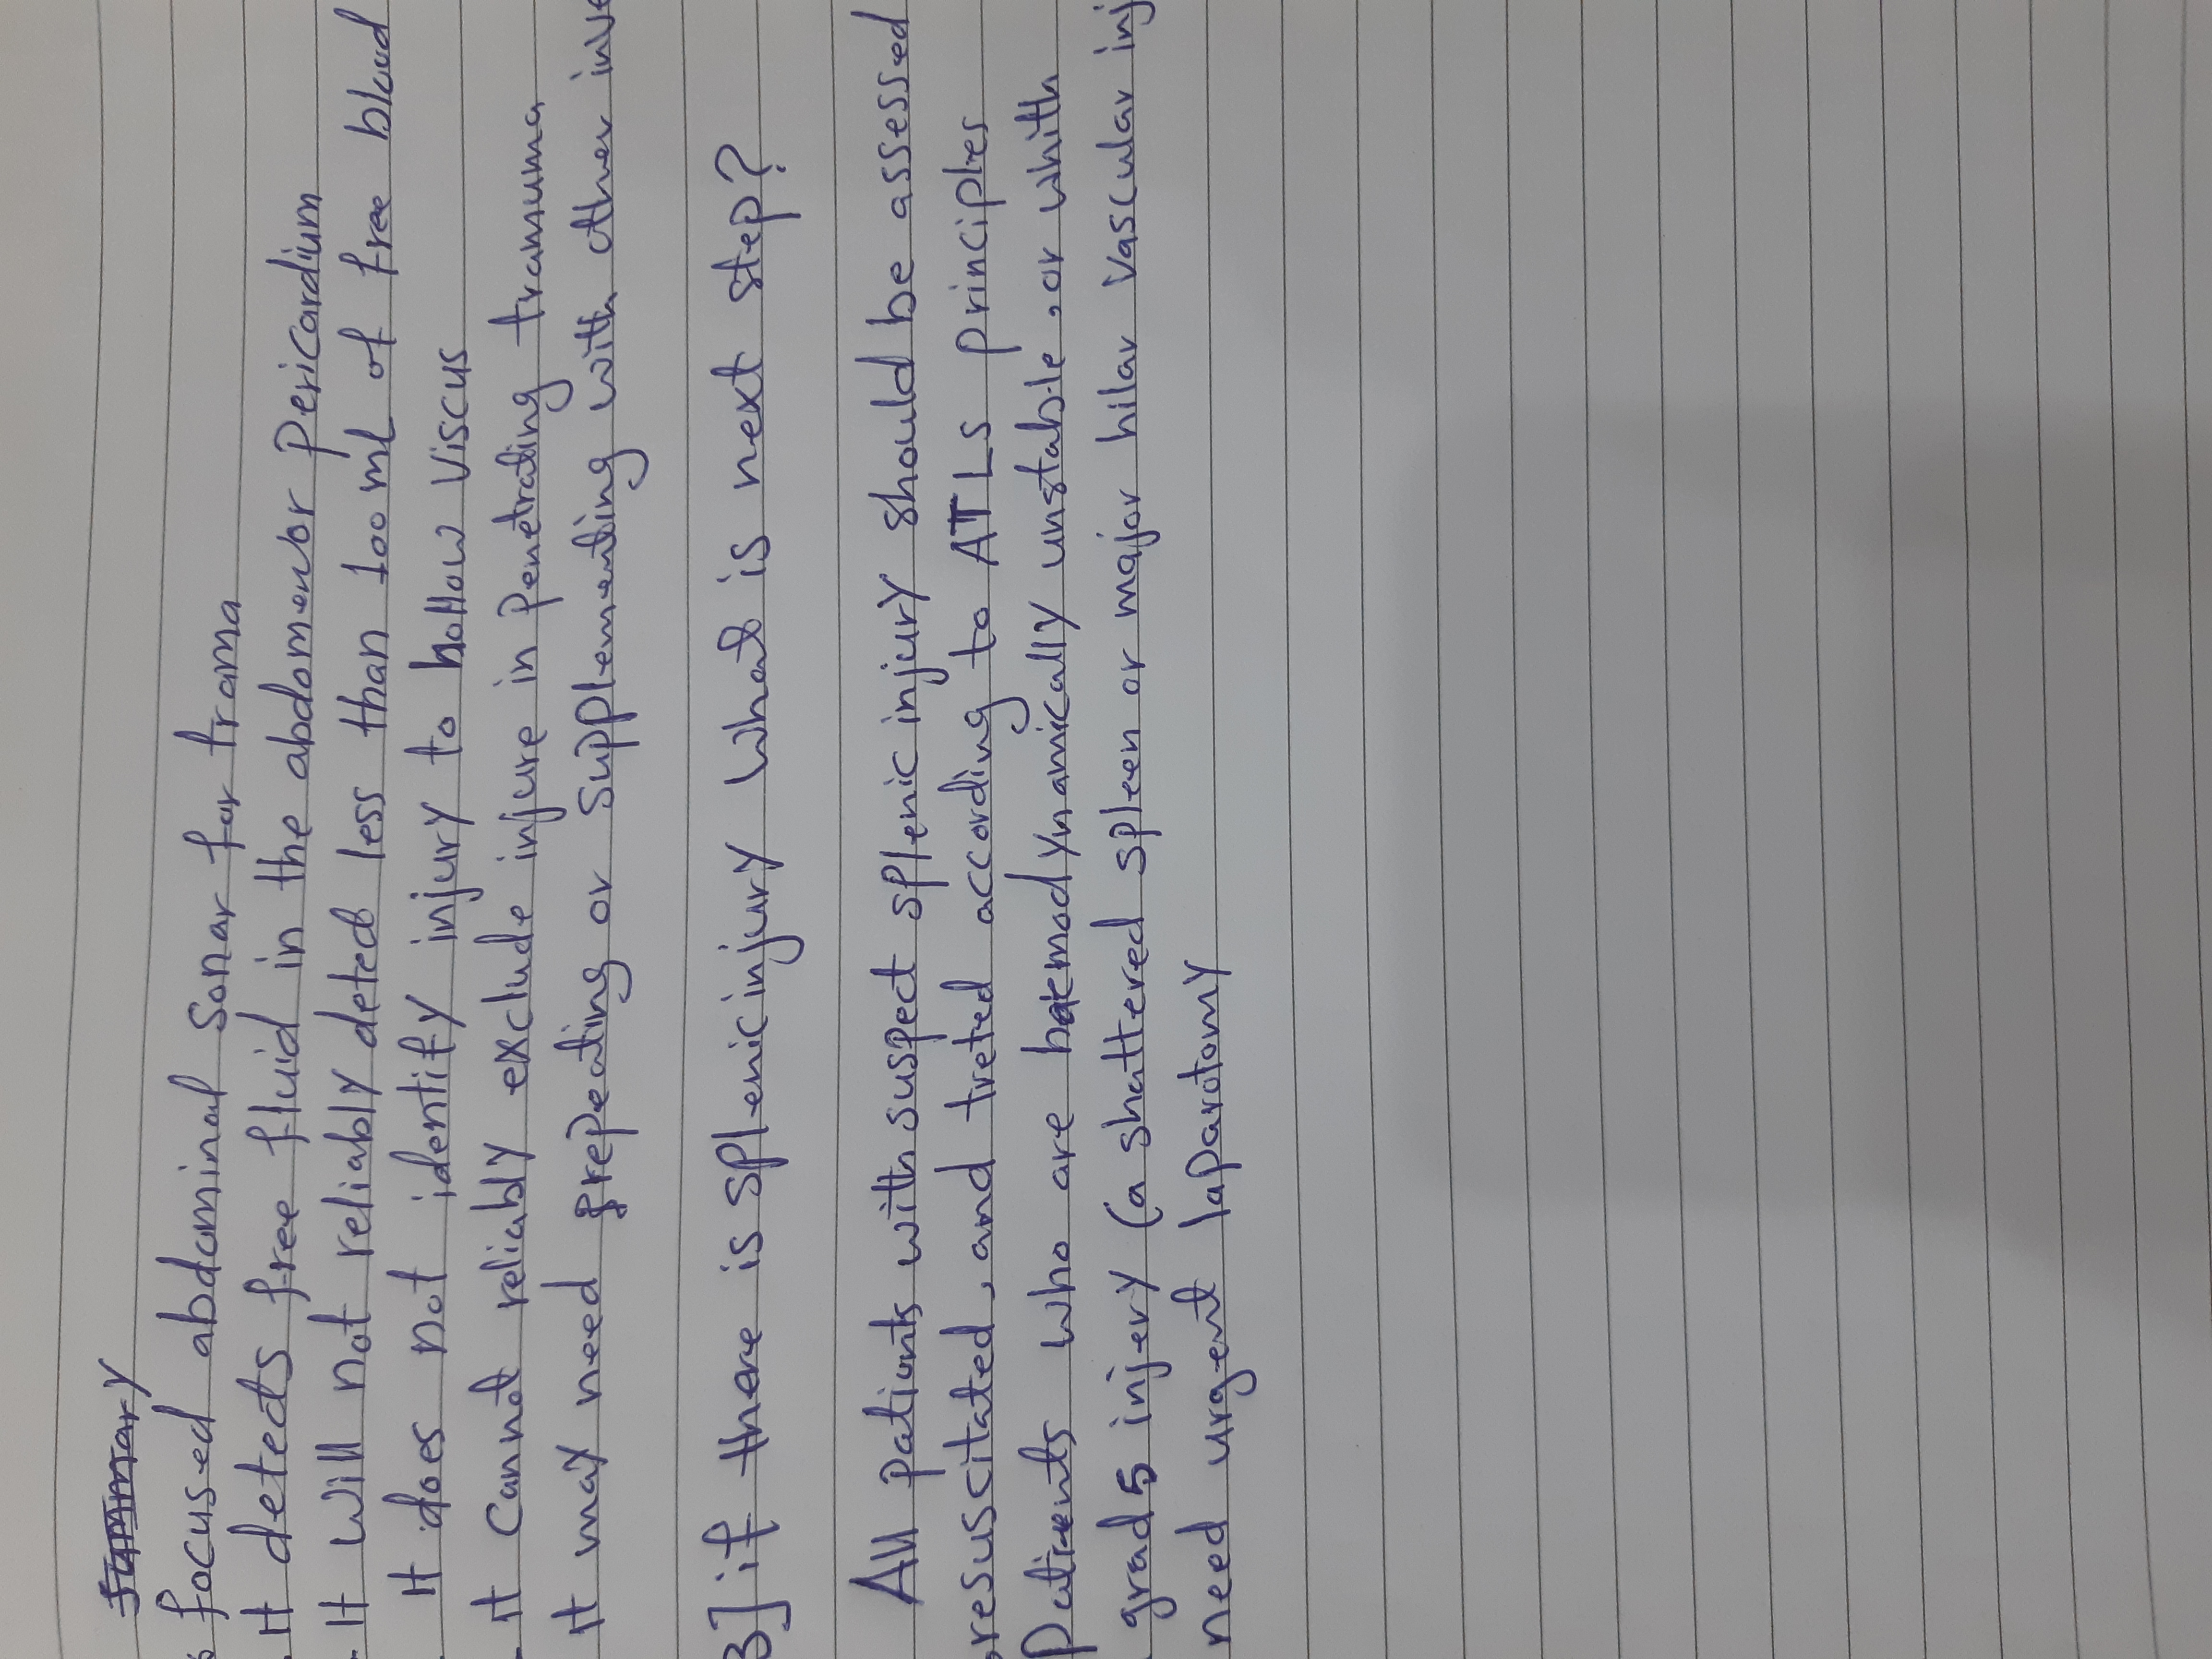 focused abdominal sonar for troma
. It detects free fluid in the abdomen or pericardium
. It will not reliably detect less than 100 ml of free blood
It does not identify injury to hollow viscus
. It cannot reliably exclude injure in penetrating tramuma
It may need repeating or supplementing with other inve
3] if there is splenic injury what is next step?
All patients with suspect splenic injury should be assessed
resuscitated, and treted according to ATLS principles
Patients who are haemodynamically unstable, or whith
grad 5 injery (a shattered spleen or major hilar vascular inj
need urgent laparotomy